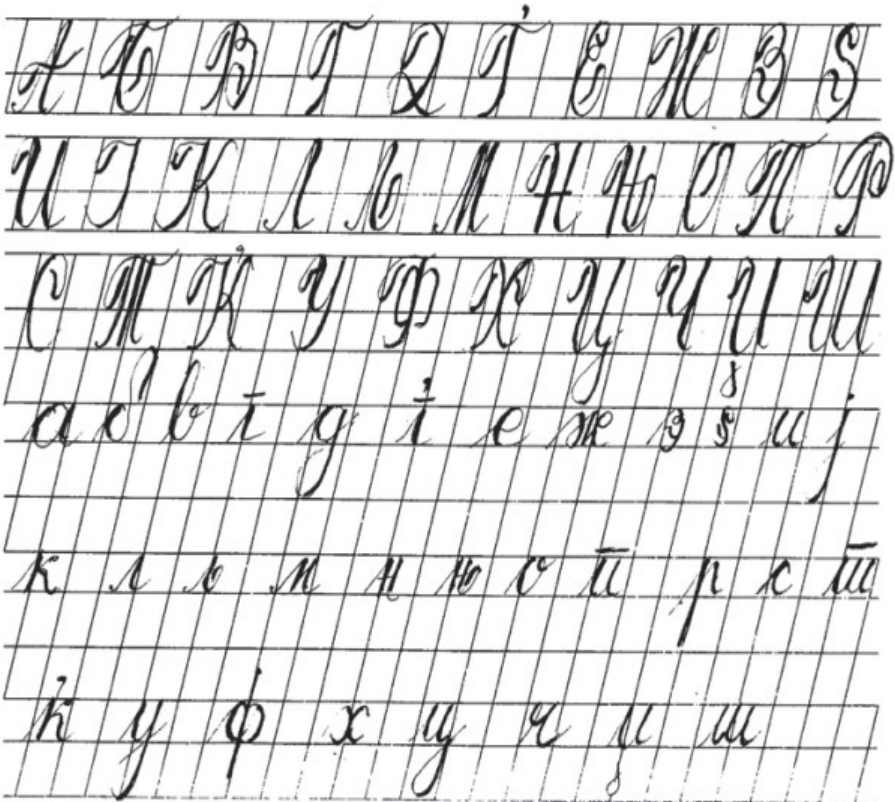 А Б В Г Д Ѓ Е Ж З Ѕ
И Ј К Л Љ М Н Њ О П Р
С Т Ќ У Ф Х Ц Ч Џ Ш
а б в г д ѓ е ж з ѕ и ј
к л љ м н њ о п р с т
ќ у ф х ц ч џ ш